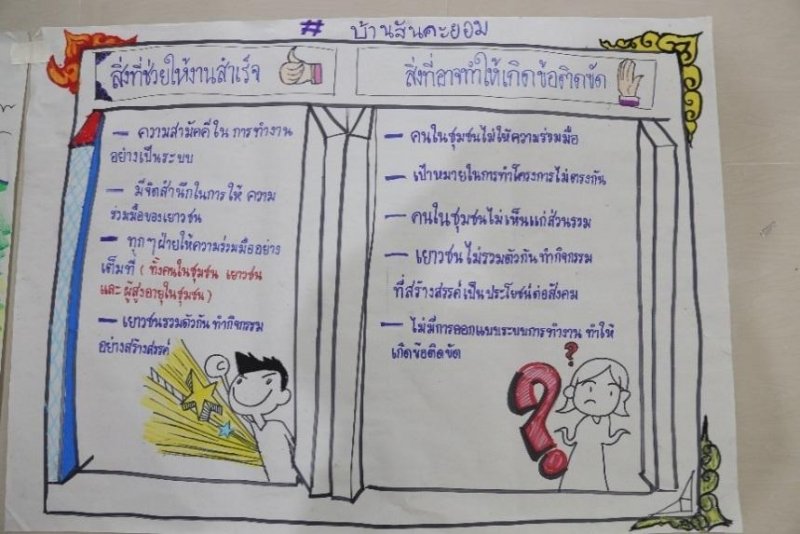 # บ้านสันคะยอม
สิ่งที่ช่วยให้งานสำเร็จ
— ความสามัคคีในการทำงาน
อย่างเป็นระบบ
— มีจิตสำนึกในการให้ความ
ร่วมมือของเยาวชน
— ทุกๆฝ่ายให้ความร่วมมืออย่าง
เต็มที่ (ทั้งคนในชุมชน เยาวชน
และผู้สูงอายุในชุมชน)
— เยาวชนรวมตัวกันทำกิจกรรม
อย่างสร้างสรรค์
สิ่งที่อาจทำให้เกิดข้อติดขัด
— คนในชุมชนไม่ให้ความร่วมมือ
— เป้าหมายในการทำโครงการไม่ตรงกัน
— คนในชุมชนไม่เห็นแก่ส่วนรวม
— เยาวชนไม่รวมตัวกันทำกิจกรรม
ที่สร้างสรรค์เป็นประโยชน์ต่อสังคม
— ไม่มีการออกแบบระบบการทำงาน ทำให้
เกิดข้อติดขัด
?
?